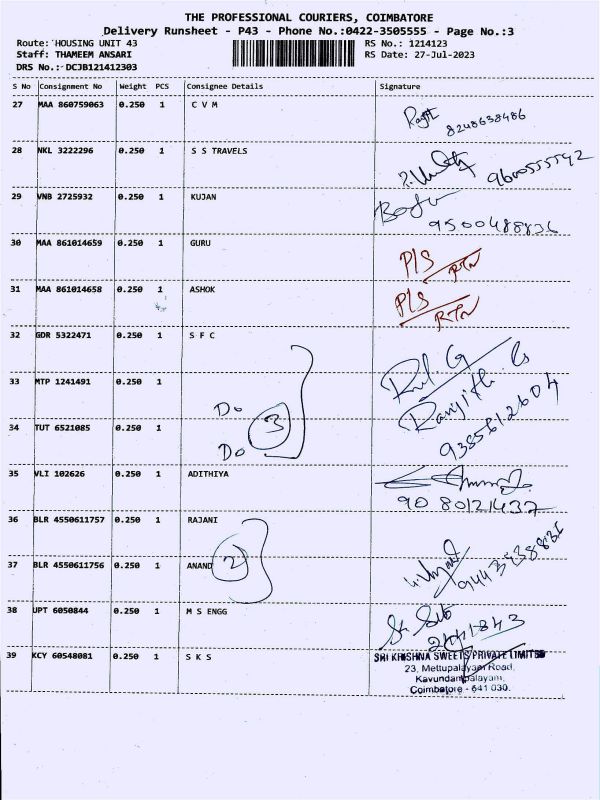 THE PROFESSIONAL COURIERS, COIMBATORE
Delivery Runsheet - P43 - Phone No.:0422-3505555 - Page No.:3
Route: HOUSING UNIT 43 RS No.: 1214123
Staff: THAMEEM ANSARI RS Date: 27-Jul-2023
DRS No.: DCJB121412303
S No Consignment No Weight PCS Consignee Details Signature
27 MAA 860759063 0.250 1 C V M
8248638486
28 NKL 3222296 0.250 1 S S TRAVELS
29 VNB 2725932 0.250 1 KUJAN
30 MAA 861014659 0.250 1 GURU P/S RTN
31 MAA 861014658 0.250 1 ASHOK P/S RTN
32 GDR 5322471 0.250 1 S F C
33 MTP 1241491 0.250 1
Do Ranjith
34 TUT 6521085 0.250 1 3
Do 9385612604
35 VLI 102626 0.250 1 ADITHIYA
9080121437
36 BLR 4550611757 0.250 1 RAJANI
37 BLR 4550611756 0.250 1 ANAND 2
38 UPT 6050844 0.250 1 M S ENGG
39 KCY 60548081 0.250 1 S K S SRI KRISHNA SWEETS PRIVATE LIMITED
23, Mettupalayam Road,
Kavundampalayam,
Coimbatore - 641 030.